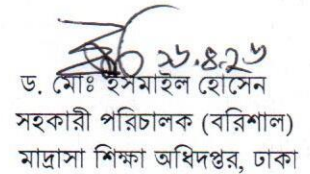 ২৬.৪.২৬
ড. মোঃ ইসমাইল হোসেন
সহকারী পরিচালক (বরিশাল)
মাদ্রাসা শিক্ষা অধিদপ্তর, ঢাকা